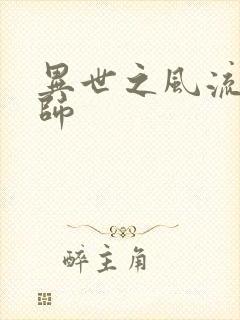 異世之風流
師
醉主角